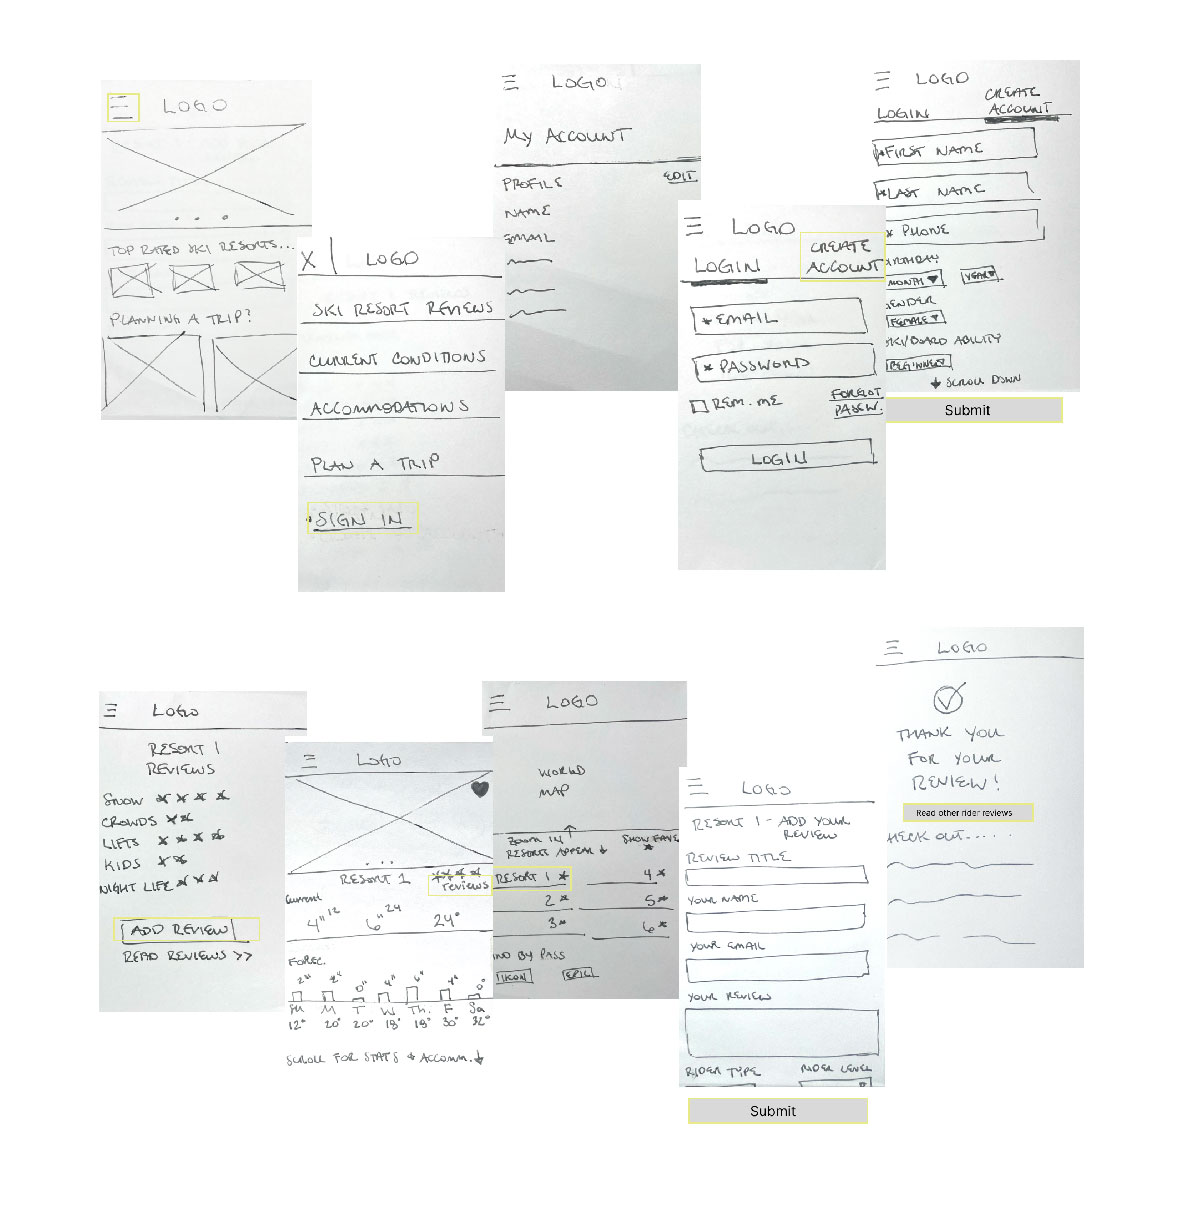 LOGO
TOP RATED SKI RESORTS...
PLANNING A TRIP?
X | LOGO
SKI RESORT REVIEWS
CURRENT CONDITIONS
ACCOMMODATIONS
PLAN A TRIP
SIGN IN
LOGO
MY ACCOUNT
PROFILE EDIT
NAME
EMAIL
LOGO
LOGIN CREATE
ACCOUNT
*EMAIL
*PASSWORD
REM. ME FORGOT
PASSW.
LOGIN
LOGO
LOGIN CREATE
ACCOUNT
*FIRST NAME
*LAST NAME
* PHONE
IRTHDAY
MONTH ▼ YEAR ▼
ENDER
FEMALE ▼
SKI/BOARD ABILITY
BEGINNER
↓ SCROLL DOWN
Submit
LOGO
RESORT 1
REVIEWS
SNOW ★ ★ ★ ★
CROWDS ★★
LIFTS ★ ★ ★ ★
KIDS ★ ★
NIGHT LIFE ★ ★ ★
ADD REVIEW
READ REVIEWS >>
LOGO
RESORT 1 ★★★★
reviews
Current
4" 12 6" 24 24°
FOREC.
2" 2" 0" 4" 6" 4" 0"
Su M T W Th. F Sa
12° 20° 20° 18° 19° 30° 32°
SCROLL FOR STATS & ACCOMM. ↓
LOGO
WORLD
MAP
ZOOM IN ↑ SHOW FAVS
RESORTS APPEAR ↓ ★
RESORT 1 ★ 4 ★
2 ★ 5 ★
3★ 6★
ND BY PASS
IKON EPIC
LOGO
RESORT 1 - ADD YOUR
REVIEW
REVIEW TITLE
YOUR NAME
YOUR EMAIL
YOUR REVIEW
RIDER TYPE RIDER LEVEL
Submit
LOGO
THANK YOU
FOR YOUR
REVIEW!
Read other rider reviews
HECK OUT.....